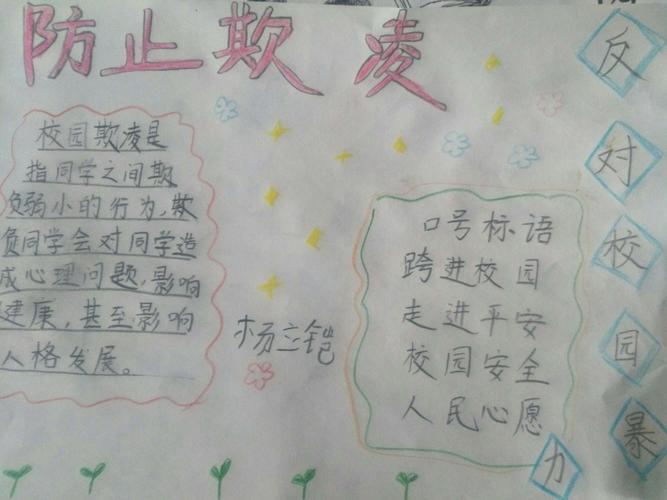 防止欺凌
校园欺凌是
指同学之间欺
负弱小的行为,欺
负同学会对同学造
成心理问题,影响
建康,甚至影响
人格发展。
杨立铠
口号标语
跨进校园
走进平安
校园安全
人民心愿
反对校园暴力